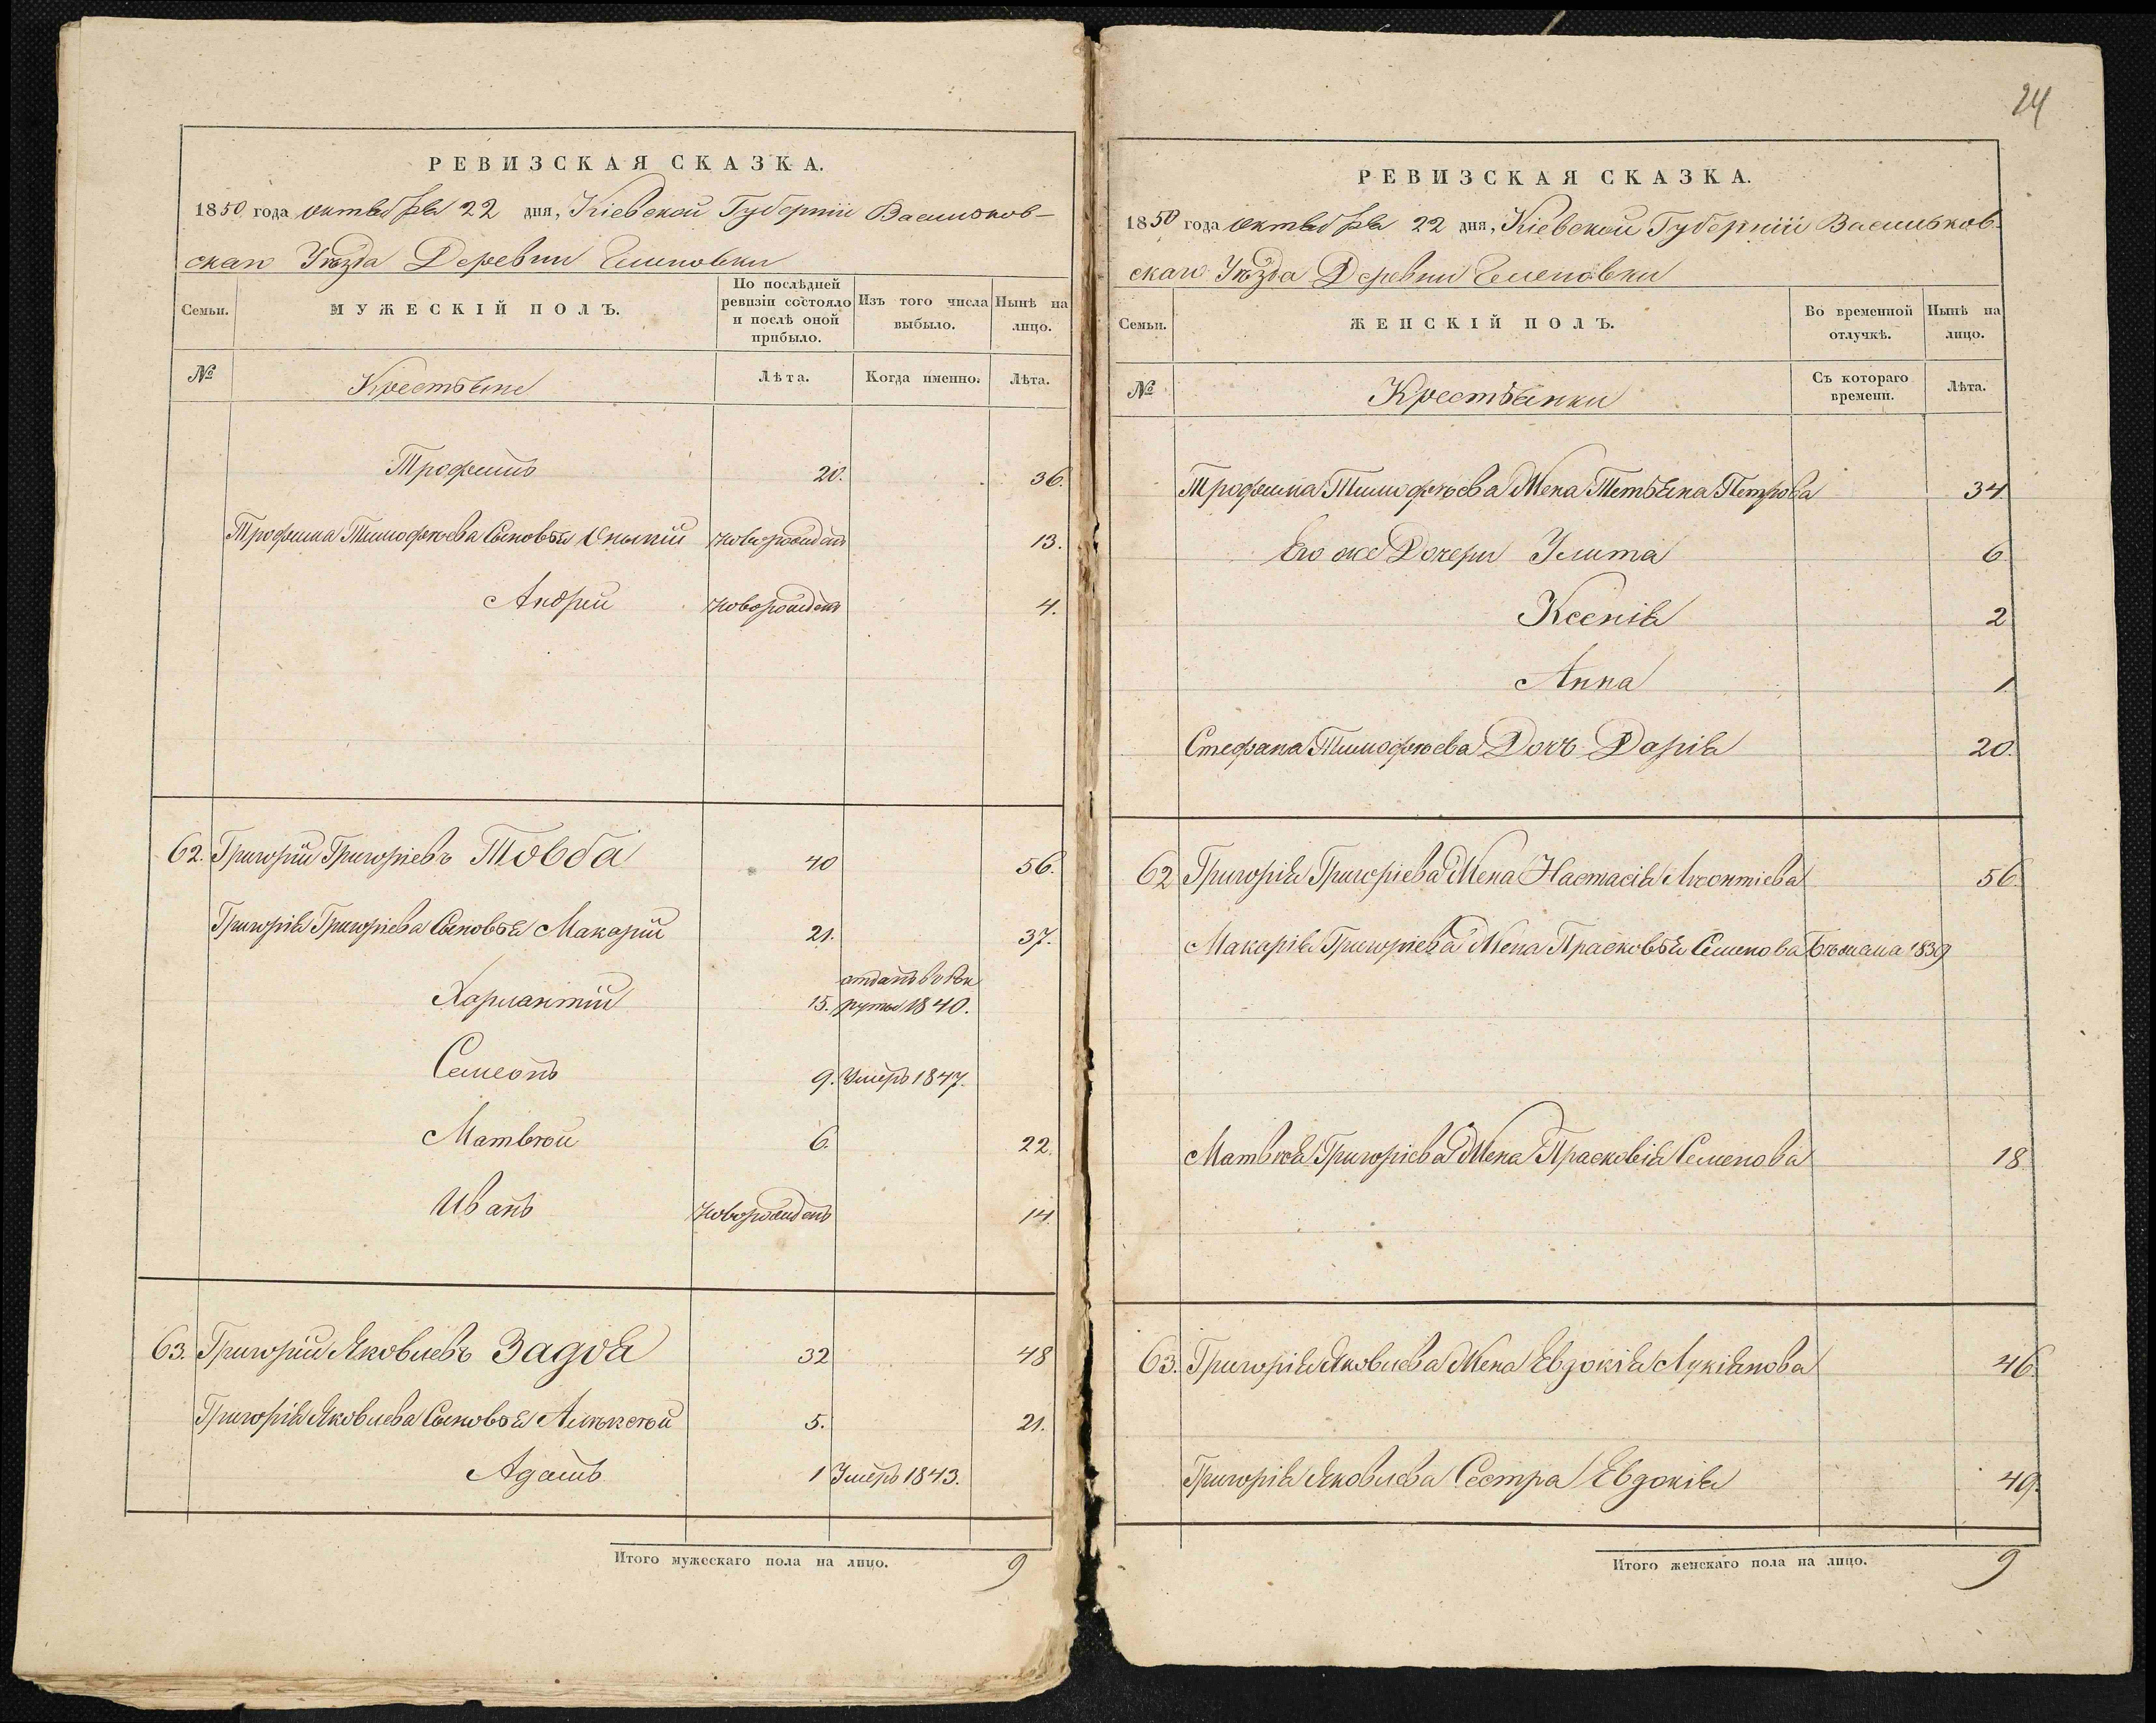 РЕВИЗСКАЯ СКАЗКА.
1850 года октября 22 дня, Кіевской Губерніи Васильков-
скаго Уѣзда Деревни Еленовки
Семьи.
МУЖЕСКІЙ ПОЛЪ.
По послѣдней ревизіи состояло и послѣ оной прибыло.
Изъ того числа выбыло.
Нынѣ на лицо.
№
Крестьяне
Лѣта.
Когда именно.
Лѣта.
Трофимъ 20. 36.
Трофима Тимофѣева Сыновья новорожденъ 13.
Андрей новорожденъ 4.
62. Григорій Григоріевъ Товба 40 56.
Григорія Григоріева Сыновья Макарій 21. 37.
отданъ въ рек
Харлампій 15. руты 1840.
Семеонъ 9. Умеръ 1847.
Матвѣй 6. 22.
Иванъ новорожденъ 14.
63. Григорій Яковлевъ Задоя 32 48
Григорія Яковлева Сыновья Алѣксѣй 5. 21.
Адамъ 1 Умеръ 1843.
Итого мужескаго пола на лицо. 9
24
РЕВИЗСКАЯ СКАЗКА.
1850 года октября 22 дня, Кіевской Губерніи Васильков-
скаго Уѣзда Деревни Еленовки
Семьи.
ЖЕНСКІЙ ПОЛЪ.
Во временной отлучкѣ.
Нынѣ на лицо.
№
Крестьянки
Съ котораго времени.
Лѣта.
Трофима Тимофѣева Жена Тетьяна Петрова 34
Его же Дочери Улита 6
Ксенія 2
Анна 1
Стефана Тимофѣева Дочь Дарія 20.
62 Григорія Григоріева Жена Настасія Леонтіева 56.
Макарія Григоріева Жена Прасковья Семенова Бѣжала 1839
Матвѣя Григоріева Жена Прасковія Семенова 18
63. Григорія Яковлева Жена Евдокія Лукіянова 46.
Григорія Яковлева Сестра Евдокія 49.
Итого женскаго пола на лицо. 9